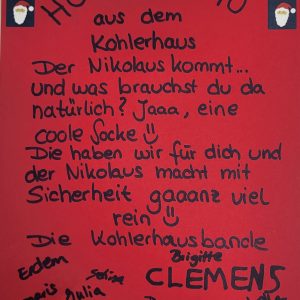 aus dem
Kohlerhaus
Der Nikolaus kommt...
und was brauchst du da
natürlich? Jaaa, eine
coole Socke
Die haben wir für dich und
der Nikolaus macht mit
Sicherheit gaaanz viel
rein
Die Kohlerhausbande
Brigitte
Erdem
CLEMENS
Julia